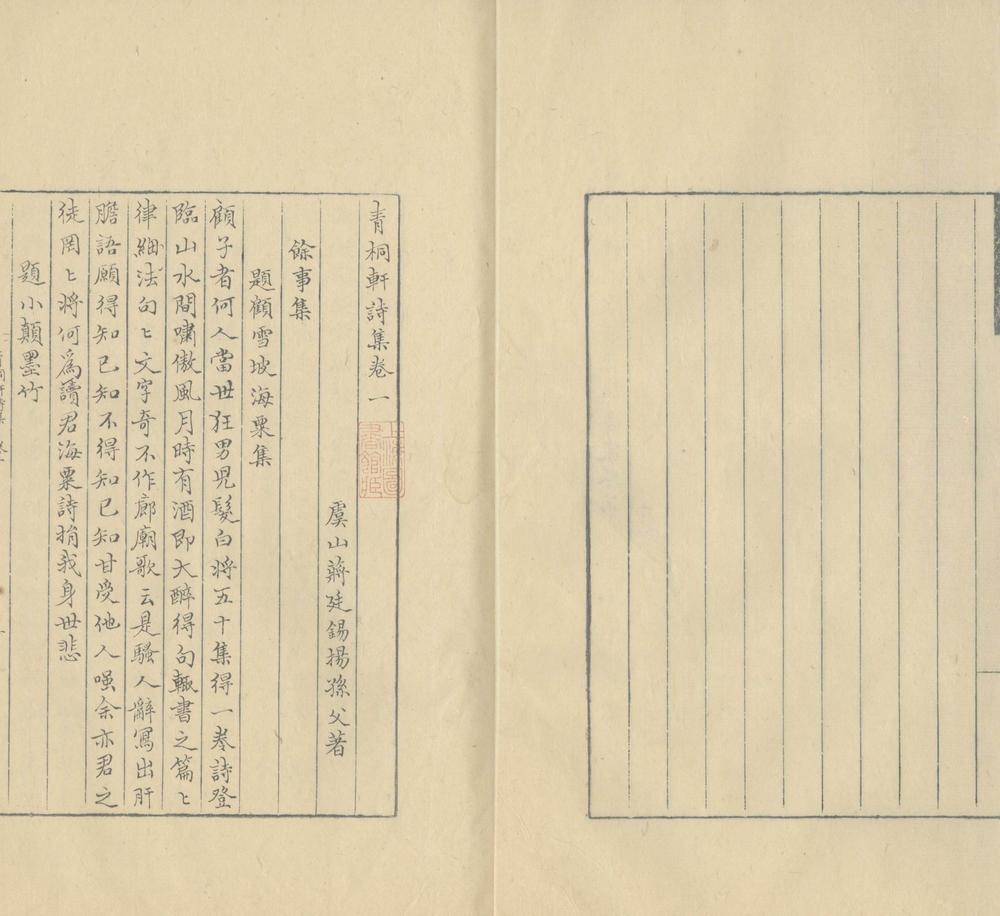 青桐軒詩集卷一
虞山蔣廷錫揚孫父著
餘事集
題顧雪坡海粟集
顧子者何人當世狂男児髮白將五十集得一卷詩登
臨山水間嘯傲風月時有酒即大醉得句輒書之篇〻
律細法句〻文字奇不作廊廟歌云是騷人辭寫出肝
膽語願得知己知不得知己知甘受他人嗤余亦君之
徒罔〻將何為讀君海粟詩捐我身世悲
題小顛墨竹
上海圖書館藏